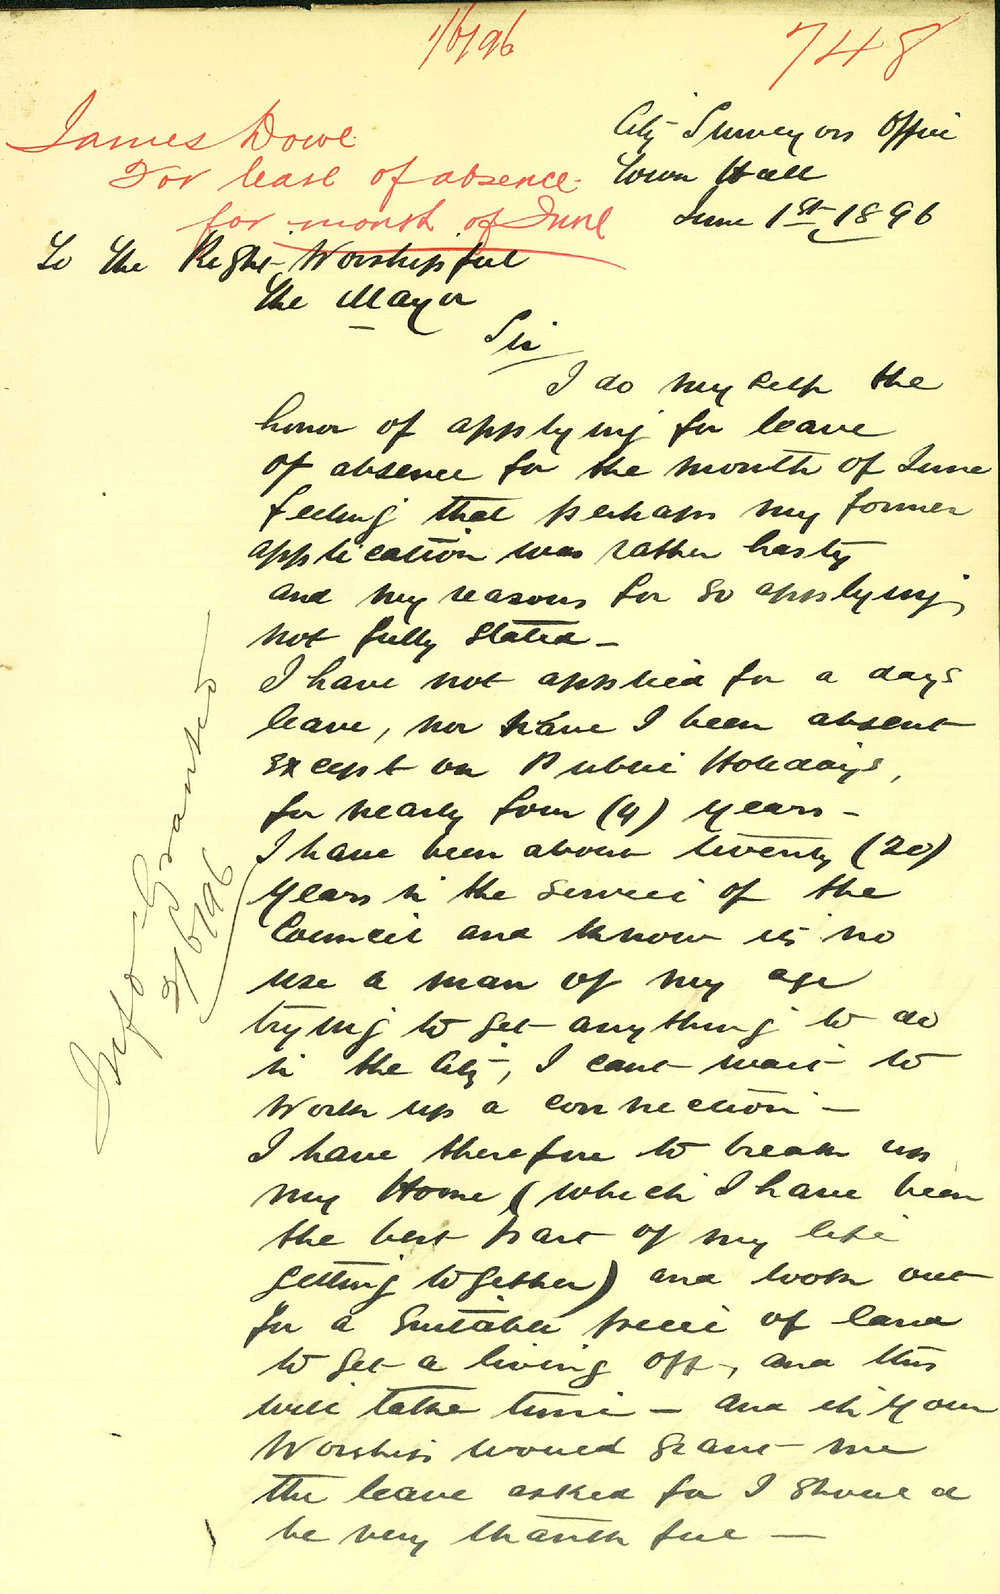 1/6/96
748
James Dowe
For leave of absence
for month of June
City Surveyors Office
Town Hall
June 1st 1896
To the Right Worshipful
The Mayor
Sir
I do myself the
honor of applying for leave
of absence for the month of June
feeling that perhaps my former
application was rather hasty
and my reasons for so applying,
not fully stated -
I have not applied for a days
leave, nor have I been absent
except on Public Holidays,
for nearly four (4) years -
I have been about twenty (20)
years in the service of the
Council and know its no
use a man of my age
trying to get anything to do
in the City, I cant wait to
work up a connection -
I have therefore to break up
my Home (which I have been
the best part of my life
getting together) and look out
for a suitable piece of land
to get a living off, and this
will take time - and if your
Worship would grant me
the leave asked for I should
be very thankful -
Granted
2/6/96